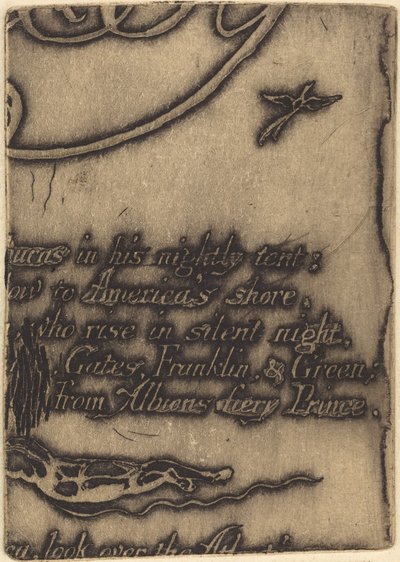 in his nightly tent;
low to America's shore;
who rise in silent night,
Gates, Franklin, & Green;
from Albions fiery Prince.
look over the